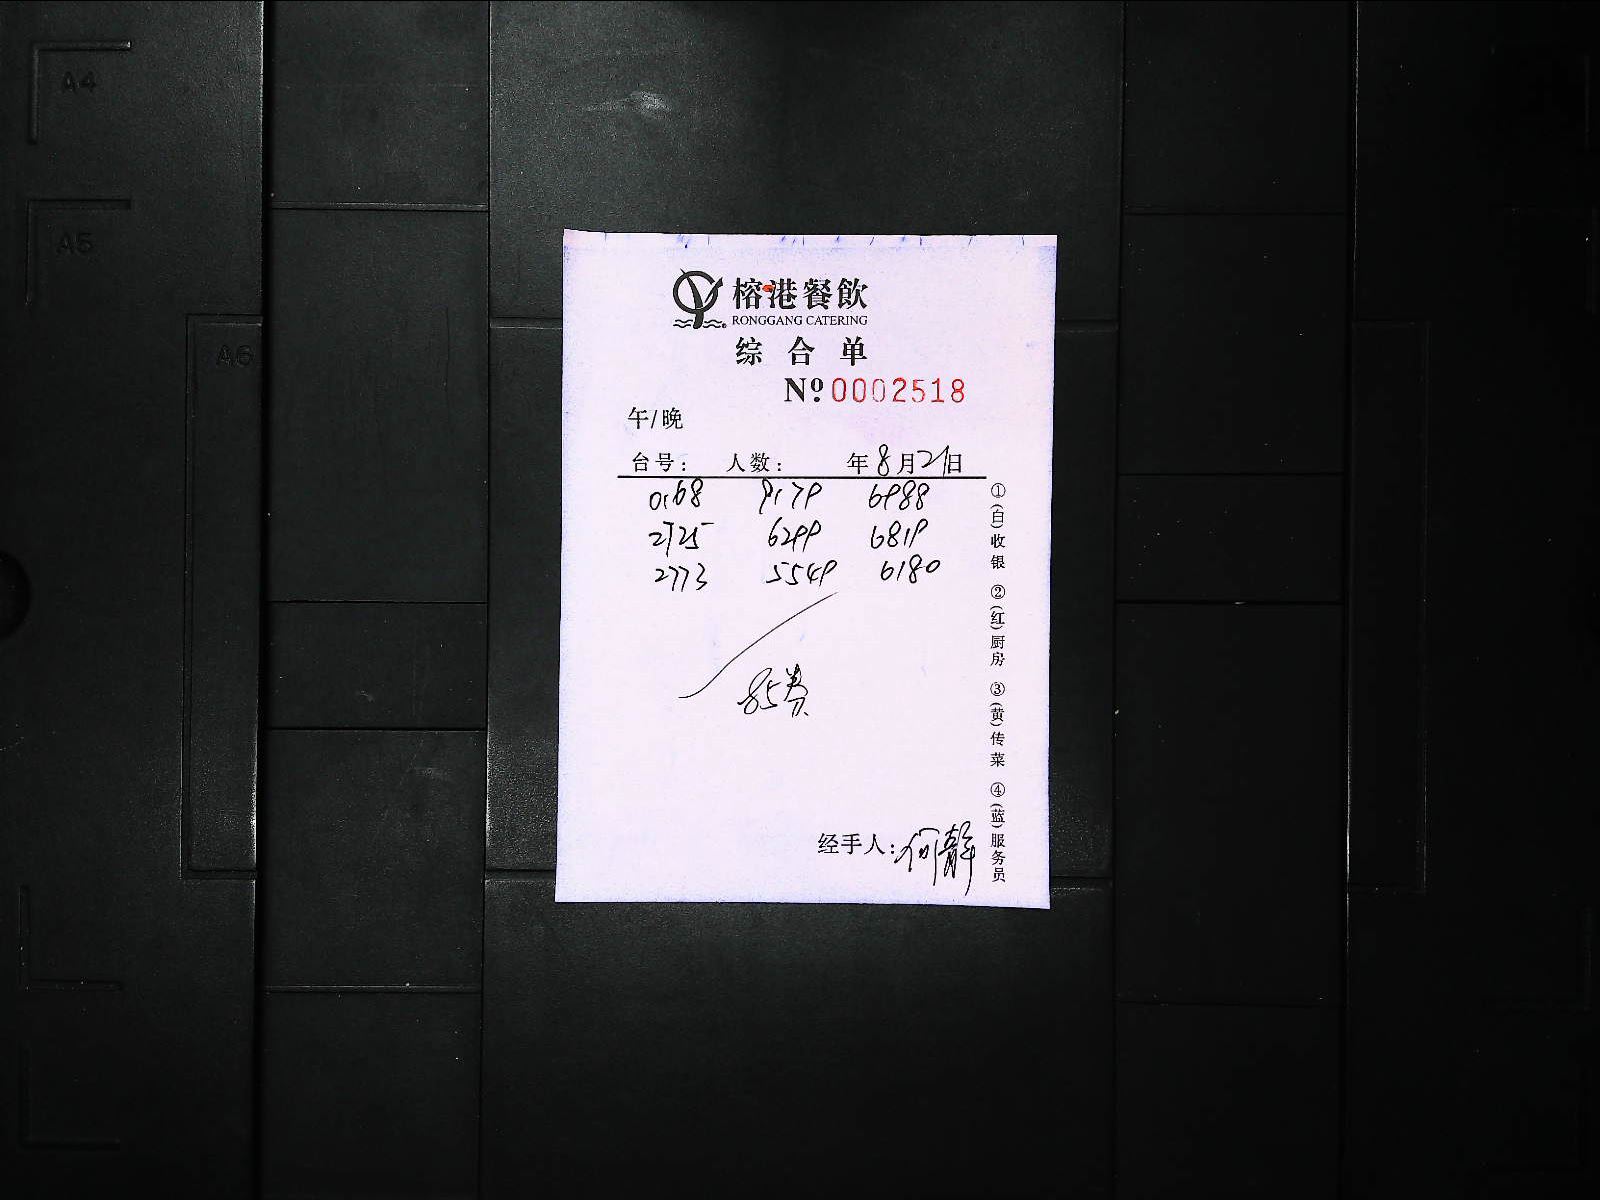 A4
A5
A6
榕港餐飲
RONGGANG CATERING
综合单
Nº 0002518
午/晚
台号: 人数: 年8月21日
0168 9179 6988
2725 6299 6819
2773 5549 6180
85券
经手人:何静
①(白)收银 ②(红)厨房 ③(黄)传菜 ④(蓝)服务员